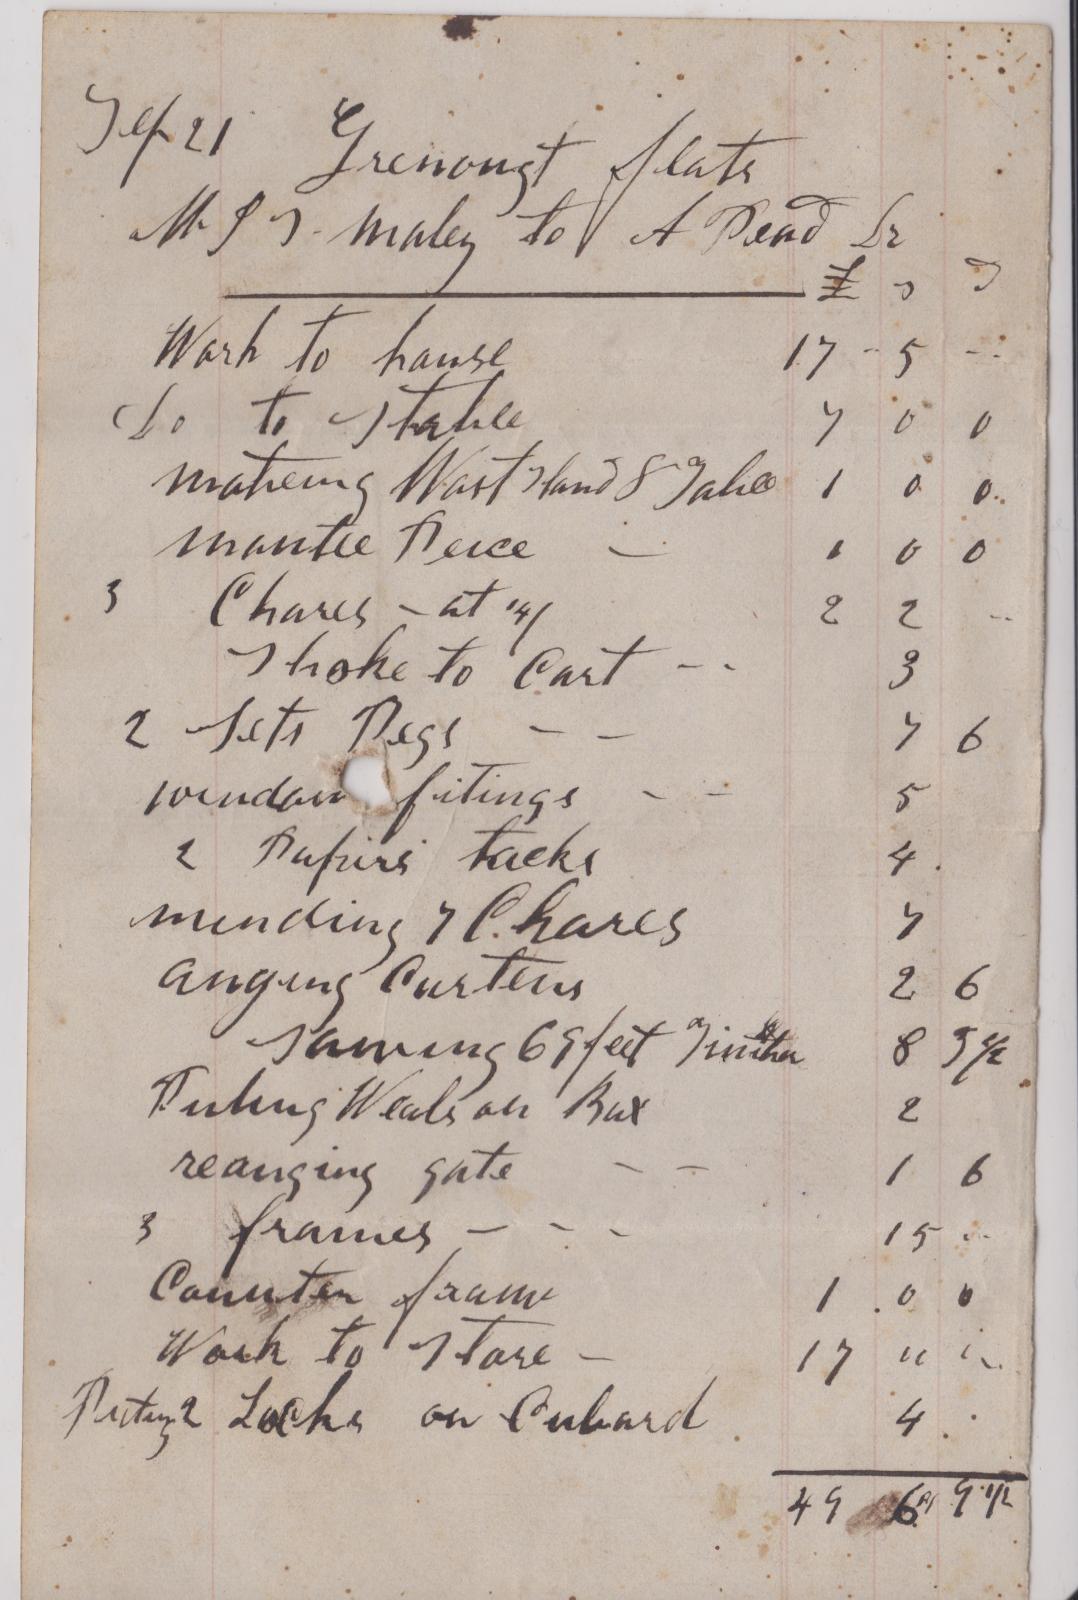 Sep 21 Grenongt flats
Mr P S. Maley to A Pead Dr
£ s D
Work to house 17 - 5 --
Do to Stable 7 0 0
Wast Stand & Table 1 0 0
mantle Peice - 1 0 0
3 Chares - at 14/ 2 2 --
Shoke to Cart -- 3
2 Sets Pegs -- 7 6
window fitings -- 5
2 Papirs tacks 4
mending 7 Chares 7
anging Curtens 2 6
Sawing 69 feet Timber 8 9 1/2
Puting Weals on Box 2
reanging gate -- 1 6
3 frames - - - 15 --
Counter frame 1 0 0
Work to Store - 17 " "
Puting 2 Locks on Cubard 4
49 6 9 1/2